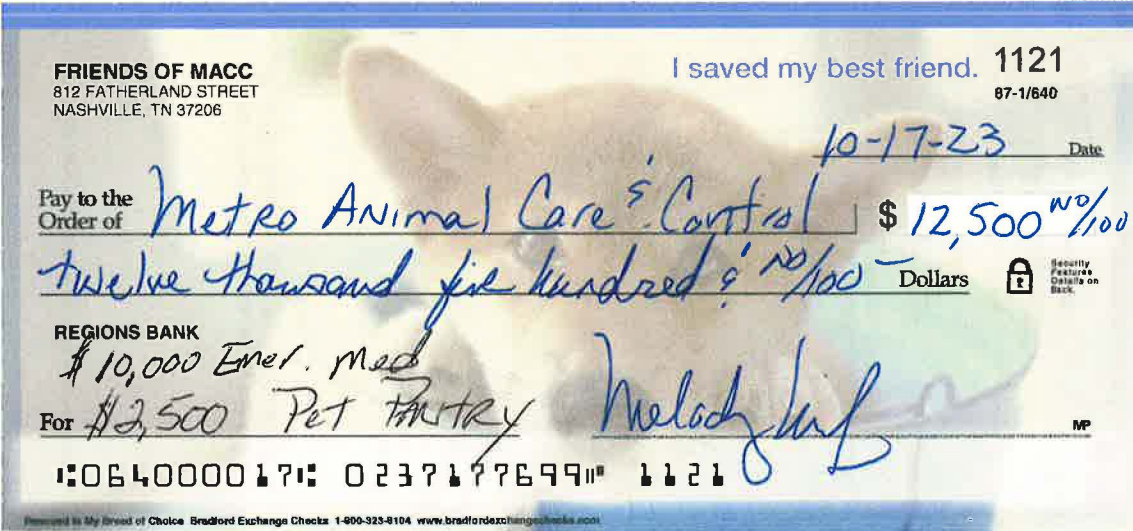 FRIENDS OF MACC
812 FATHERLAND STREET
NASHVILLE, TN 37206
I saved my best friend. 1121
87-1/640
10-17-23 Date
Pay to the Order of Metro Animal Care & Control $ 12,500 NO/100
twelve thousand five hundred & NO/100 Dollars
Security Features Details on Back.
REGIONS BANK
$10,000 Emer. Med
For $2,500 Pet Pantry
Melody
MP
⑆064000017⑆ 0237177699⑈ 1121
Rescued is My Breed of Choice Bradford Exchange Checks 1-800-323-8104 www.bradfordexchangechecks.com